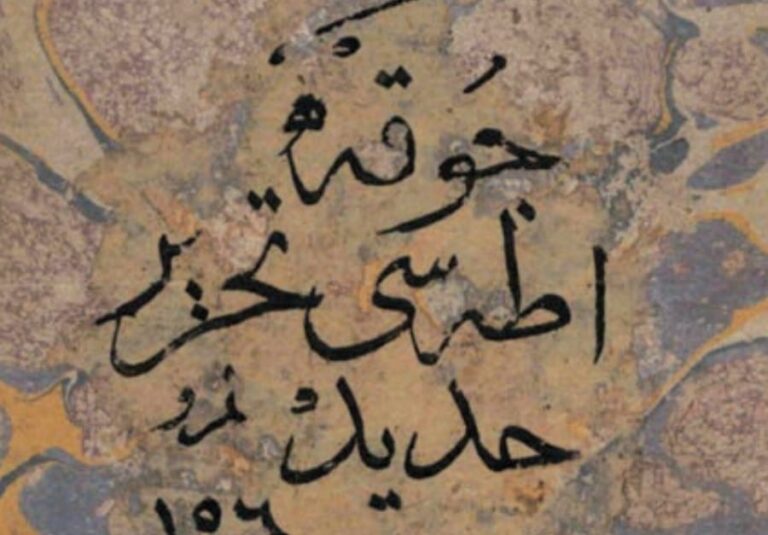 جُوقه
اطه سی تحریر
جدید نمرو
١٥٦